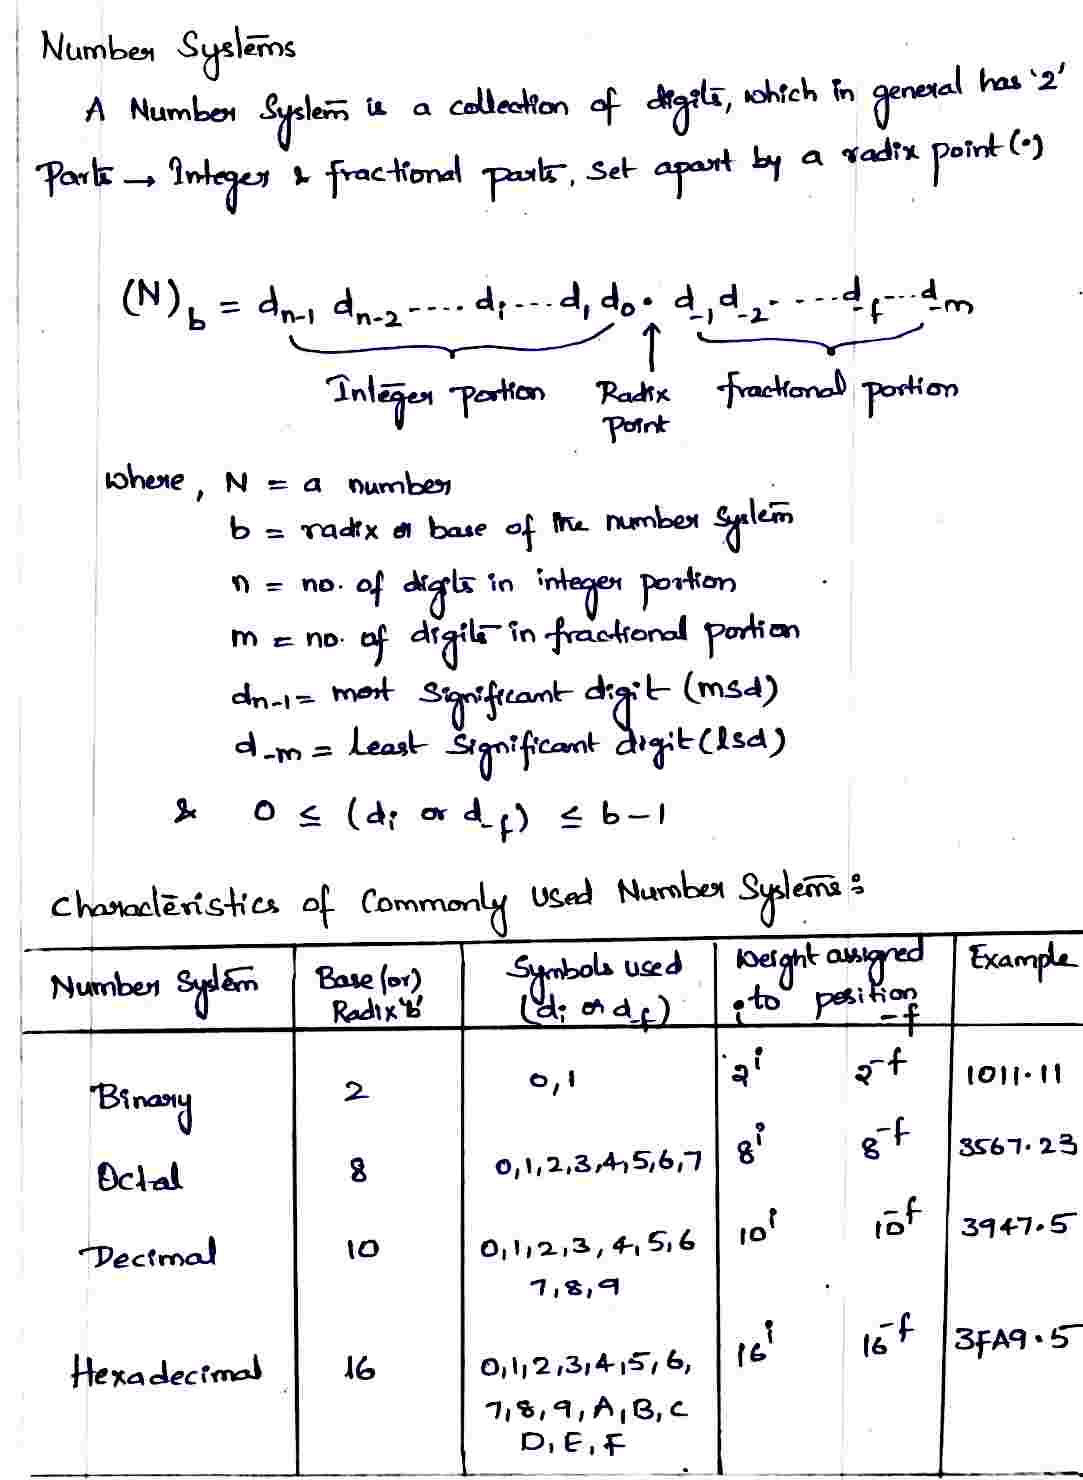 Number Systems
A Number System is a collection of digits, which in general has '2'
Parts → Integer & fractional parts, set apart by a radix point (.)
(N)b = dn-1 dn-2 ---- di --- d1 d0 . d-1 d-2 ---- d-f --- d-m
Integer portion Radix Point fractional portion
where, N = a number
b = radix or base of the number system
n = no. of digits in integer portion
m = no. of digits in fractional portion
dn-1 = most significant digit (msd)
d-m = Least significant digit (lsd)
& 0 ≤ (di or d-f) ≤ b-1
Characteristics of Commonly Used Number Systems:
Number System Base (or) Radix 'b' Symbols used (di or d-f) Weight assigned to position i -f Example
Binary 2 0,1 2^i 2^-f 1011.11
Octal 8 0,1,2,3,4,5,6,7 8^i 8^-f 3567.23
Decimal 10 0,1,2,3,4,5,6 10^i 10^-f 3947.5
7,8,9
Hexadecimal 16 0,1,2,3,4,5,6, 16^i 16^-f 3FA9.5
7,8,9,A,B,C
D,E,F